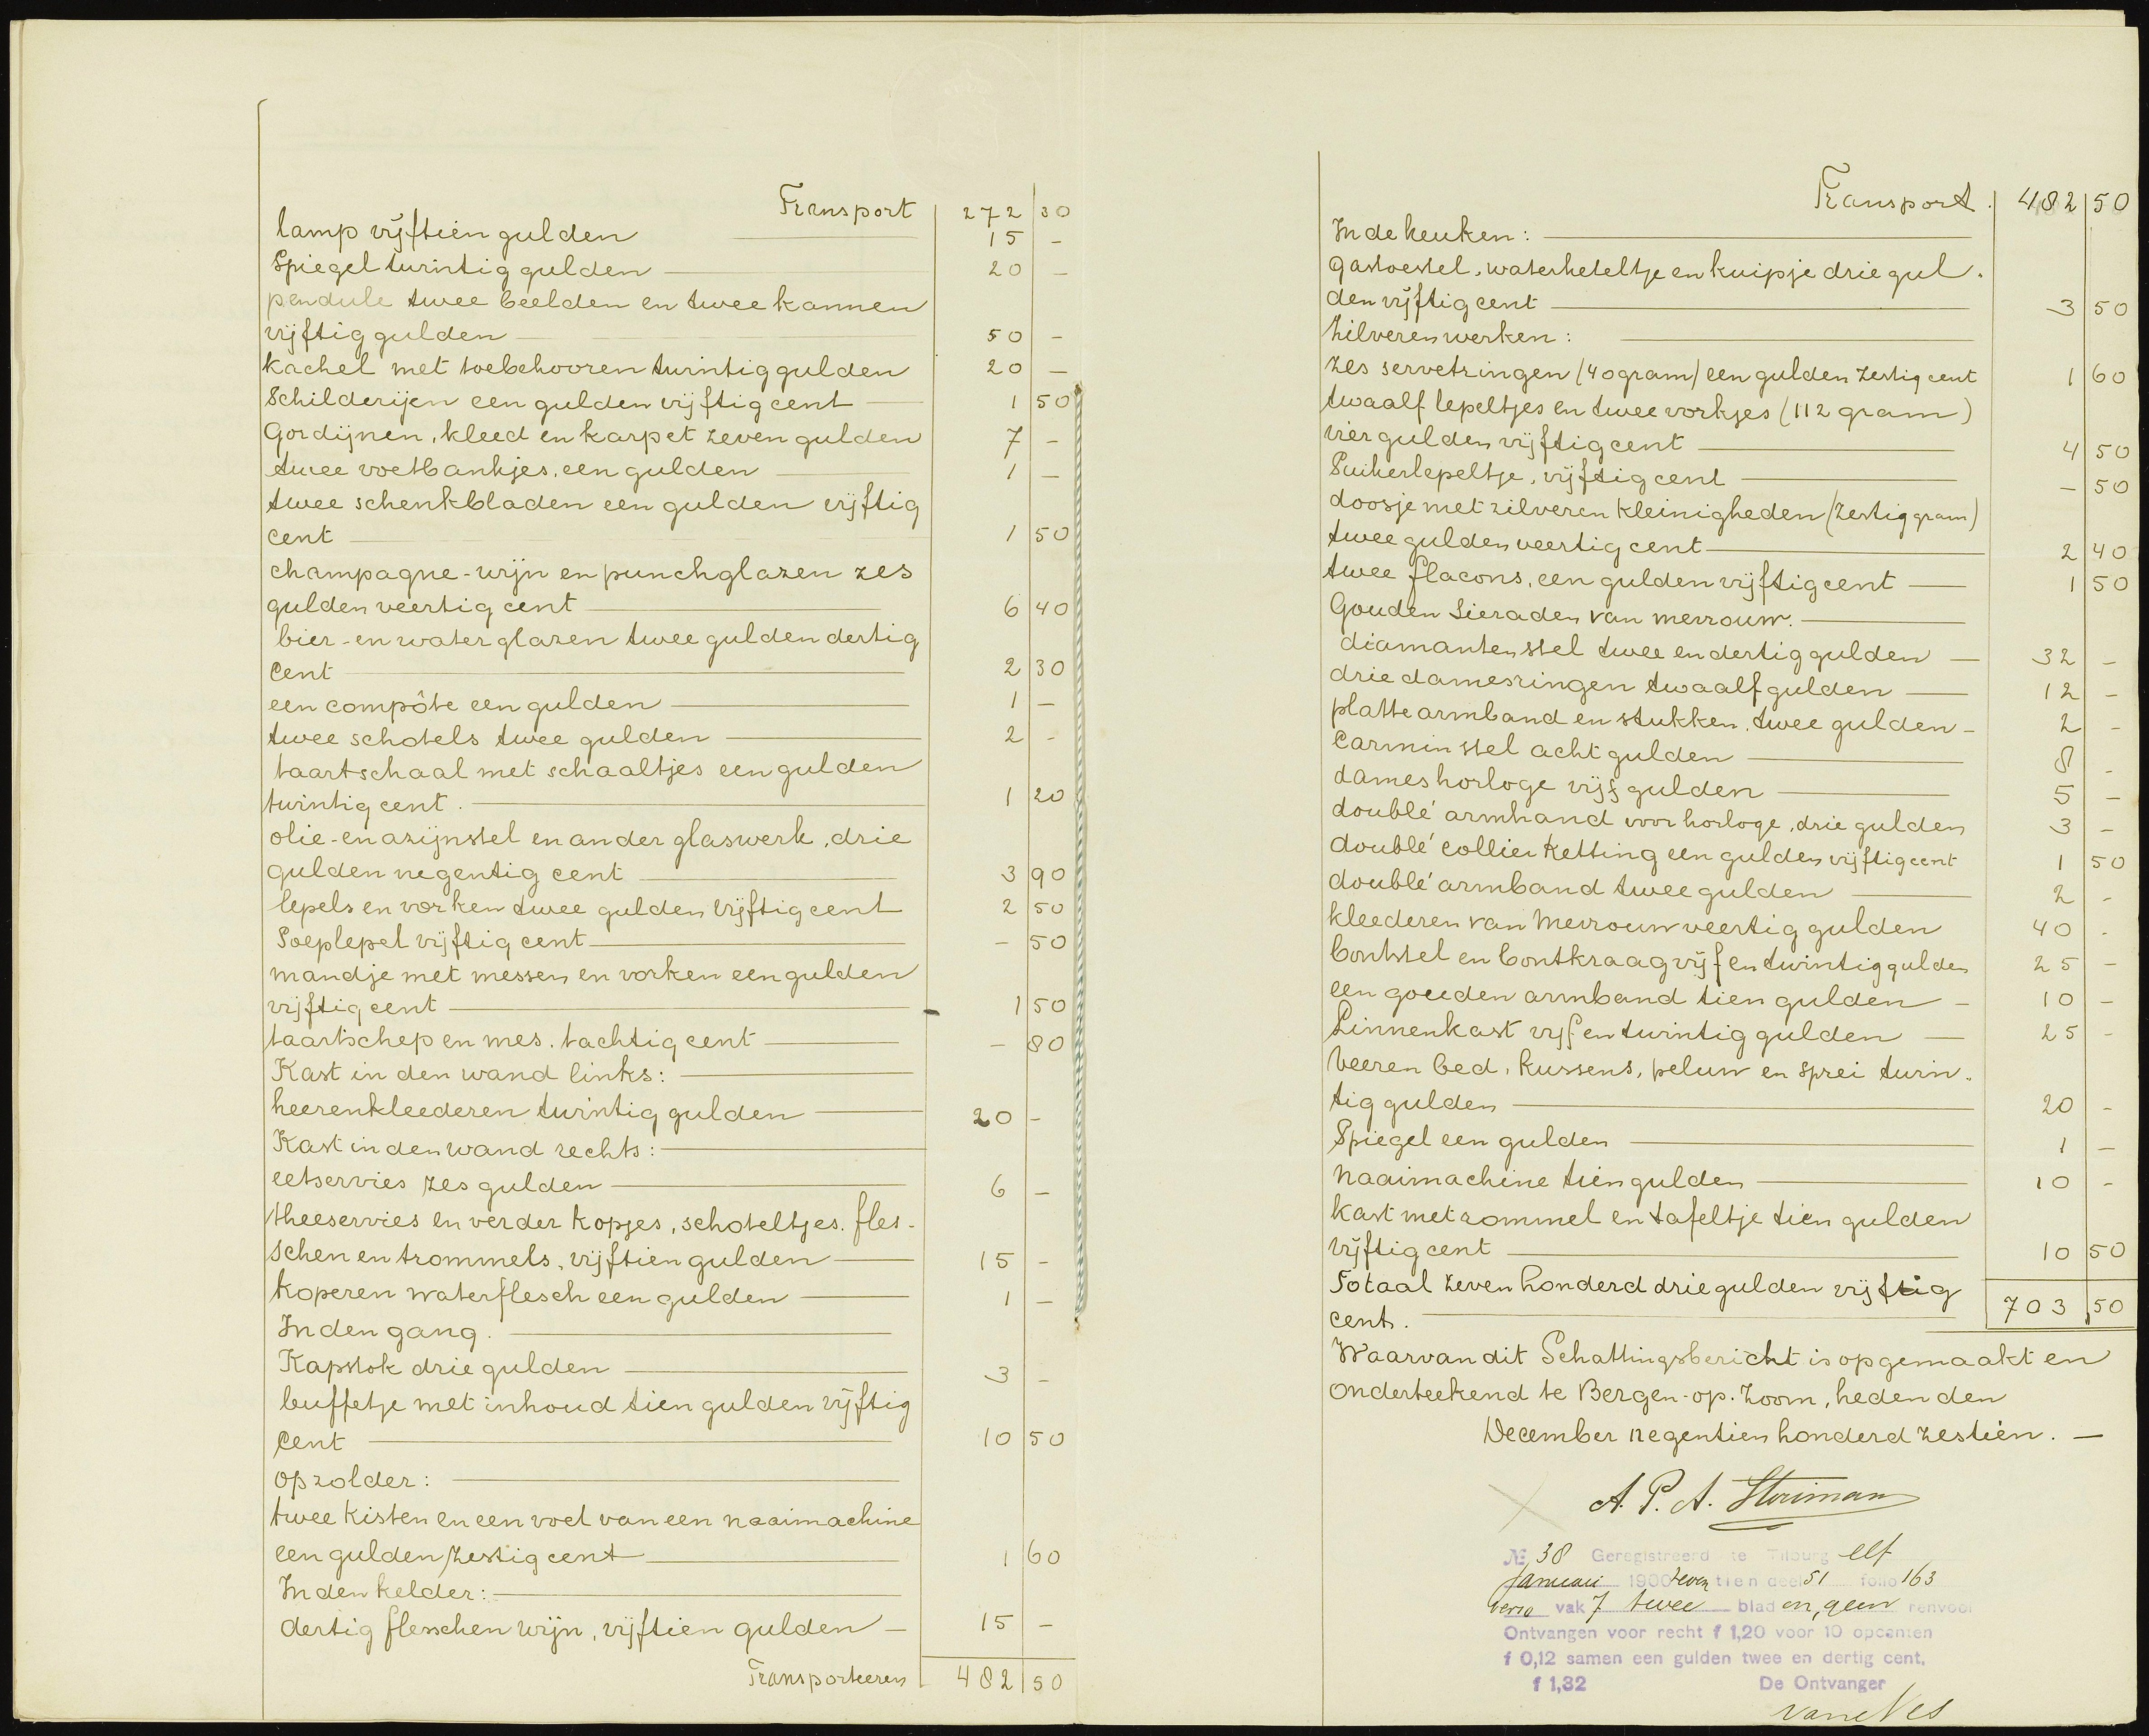 Transport 272 30
lamp vijftien gulden 15 -
Spiegel twintig gulden 20 -
pendule twee beelden en twee kannen
vijftig gulden 50 -
kachel met toebehooren twintig gulden 20 -
Schilderijen een gulden vijftig cent 1 50
Gordijnen, kleed en karpet zeven gulden 7 -
twee voetbankjes, een gulden 1 -
twee schenkbladen een gulden vijftig
cent 1 50
champagne-wijn en punchglazen zes
gulden veertig cent 6 40
bier-en waterglazen twee gulden dertig
Cent 2 30
een compôte een gulden 1 -
twee schotels twee gulden 2 -
taartschaal met schaaltjes een gulden
twintig cent. 1 20
olie-en azijnstel en ander glaswerk, drie
gulden negentig cent 3 90
lepels en vorken twee gulden vijftig cent 2 50
Soeplepel vijftig cent - 50
mandje met messen en vorken een gulden
vijftig cent 1 50
taartschep en mes. tachtig cent - 80
Kast in den wand links:
heerenkleederen twintig gulden 20 -
Kast in den wand rechts:
eetservies zes gulden 6 -
theeservies en verder kopjes, schoteltjes. fles-
schen en trommels, vijftien gulden 15 -
koperen waterflesch een gulden 1 -
In den gang.
Kapstok drie gulden 3 -
buffetje met inhoud tien gulden vijftig
Cent 10 50
op zolder:
twee kisten en een voet van een naaimachine
een gulden zestig cent 1 60
In den kelder:
dertig flesschen wijn, vijftien gulden 15 -
Transporteeren 482 50
Transport. 482 50
In de keuken:
gastoestel, waterketeltje en kuipje drie gul-
den vijftig cent 3 50
Zilveren werken:
zes servetringen (40 gram) een gulden zestig cent 1 60
twaalf lepeltjes en twee vorkjes (112 gram)
vier gulden vijftig cent 4 50
Suikerlepeltje, vijftig cent - 50
doosje met zilveren kleinigheden (zestig gram)
twee gulden veertig cent 2 40
twee flacons, een gulden vijftig cent 1 50
Gouden Sieraden van mevrouw.
diamanten stel twee en dertig gulden 32 -
drie damesringen twaalf gulden 12 -
platte armband en stukken, twee gulden 2 -
Carmin stel acht gulden 8 -
dameshorloge vijf gulden 5 -
doublé armband voor horloge, drie gulden 3 -
doublé collier ketting een gulden vijftig cent 1 50
doublé armband twee gulden 2 -
kleederen van Mevrouw veertig gulden 40 -
bontstel en bontkraag vijf en twintig gulden 25 -
een gouden armband tien gulden 10 -
Linnenkast vijf en twintig gulden 25 -
veeren bed, kussens, peluw en sprei twin-
tig gulden 20 -
Spiegel een gulden 1 -
Naaimachine tien gulden 10 -
kast met rommel en tafeltje tien gulden
vijftig cent 10 50
Totaal zeven honderd drie gulden vijftig
cent. 703,50
Waarvan dit Schattingsbericht is opgemaakt en
onderteekend te Bergen-op-Zoom, heden den
December negentien honderd zestien.
A. P. A.
№ 38 Geregistreerd te Tilburg elf
Januari 1900 zeventien deel 51 folio 163
verso vak 7 twee bladen, geen renvooi
Ontvangen voor recht f 1,20 voor 10 opcenten
f 0,12 samen een gulden twee en dertig cent,
f 1,32 De Ontvanger
van Nes